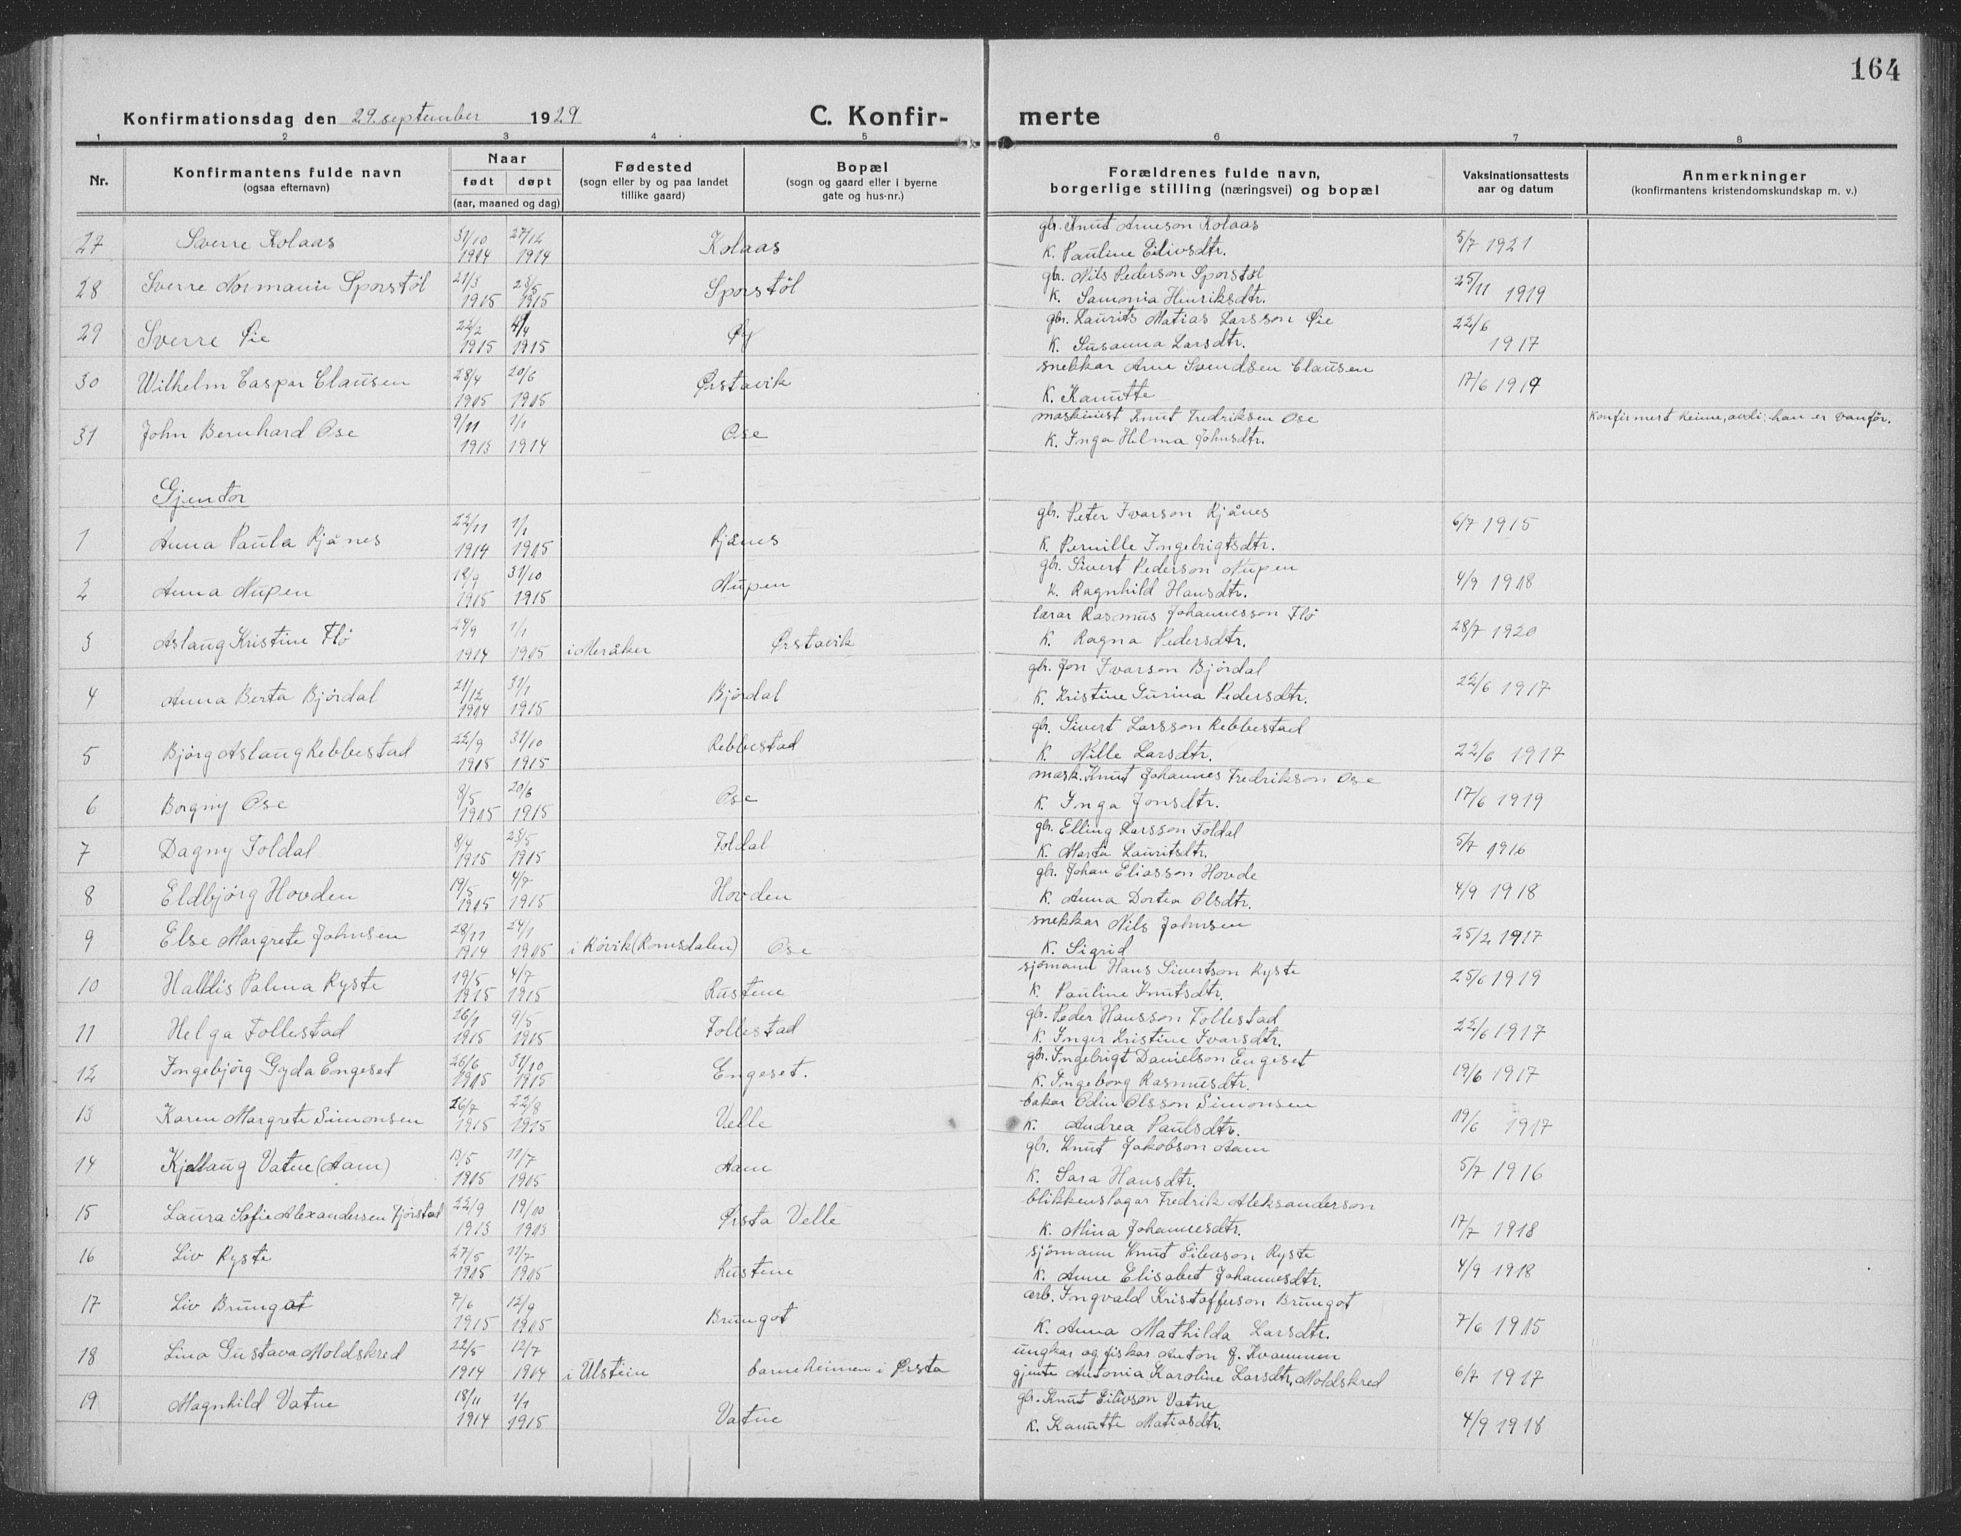 164
Konfirmationsdag den 29. september 1929 C. Konfir- merte
1 2 3 4 5 6 7 8
Nr. Konfirmantens fulde navn (ogsaa efternavn) Naar født døpt (aar, maaned og dag) Fødested (sogn eller by og paa landet tillike gaard) Bopæl (sogn og gaard eller i byerne gate og hus-nr.) Forældrenes fulde navn, borgerlige stilling (næringsvei) og bopæl Vaksinationsattests aar og datum Anmerkninger (konfirmantens kristendomskundskap m. v.)
27 Sverre Kolaas 31/10 1914 27/12 1914 Kolaas gbr. Knut Arneson Kolaas 5/7 1921
K. Pauline Eilivsdtr.
28 Sverre Normann Sporstøl 21/3 1915 23/5 1915 Sporstøl gbr. Nils Pederson Sporstøl 25/11 1919
K. Samonia Hinriksdtr.
29 Sverre Øie 22/2 1915 4/4 1915 Øy gbr. Laurits Matias Larsson Øie 22/6 1917
K. Susanna Larsdtr.
30 Wilhelm Caspar Clausen 28/4 1915 20/6 1915 Ørstavik snekkar Arne Svendsen Clausen 17/6 1919
K. Kanutte
31 John Bernhard Ose 9/11 1913 1/1 1914 Ose maskinist Knut Fredriksen Ose Konfirmert heime, avdi han er vanfør.
K. Inga Hilma Johnsdtr.
Gjentor
1 Anna Paula Rjånes 22/11 1914 1/1 1915 Rjånes gbr. Peter Ivarson Rjånes 6/7 1915
K. Pernille Ingebrigtsdtr.
2 Anna Nupen 12/9 1915 31/10 1915 Nupen gbr. Sivert Pederson Nupen 4/9 1918
K. Ragnhild Hansdtr.
3 Aslaug Kristine Flø 29/9 1914 1/1 1915 i Meråker Ørstavik lærar Rasmus Johannesson Flø 28/7 1920
K. Ragna Pedersdtr.
4 Anna Berta Bjørdal 21/12 1914 31/1 1915 Bjørdal gbr. Jon Ivarson Bjørdal 22/6 1917
K. Kristine Gurina Pedersdtr.
5 Bjørg Aslaug Rebbestad 22/9 1915 31/10 1915 Rebbestad gbr. Sivert Larsson Rebbestad 22/6 1917
K. Nille Larsdtr.
6 Borgny Ose 8/5 1915 20/6 1915 Ose mask. Knut Johannes Fredrikson Ose 17/6 1919
K. Inga Jonsdtr.
7 Dagny Foldal 8/4 1915 23/5 1915 Foldal gbr. Elling Larsson Foldal 5/7 1916
K. Marta Lauritsdtr.
8 Eldbjørg Hovden 19/5 1915 4/7 1915 Hovden gbr. Johan Eliasson Hovde 4/9 1918
K. Anna Dortea Olsdtr.
9 Else Margrete Johnsen 28/11 1914 24/1 1915 i Røvik (Romsdalen) Ose snekkar Nils Johnsen 25/2 1917
K. Sigrid
10 Halldis Palma Ryste 19/5 1915 4/7 1915 Rustene sjømann Hans Sivertson Ryste 25/6 1919
K. Pauline Knutsdtr.
11 Helga Follestad 26/1 1915 9/5 1915 Follestad gbr. Peder Hansson Follestad 22/6 1917
K. Inger Kristine Ivarsdtr.
12 Ingebjørg Gyda Engeset 26/6 1915 31/10 1915 Engeset. gbr. Ingebrigt Danielson Engeset 19/6 1917
K. Ingeborg Rasmusdtr.
13 Karen Margrete Simonsen 26/7 1915 22/8 1915 Velle bakar Odin Olsson Simonsen 19/6 1917
K. Andrea Paulsdtr.
14 Kjellaug Vatne (Aam) 13/5 1915 11/7 1915 Aam gbr. Knut Jakobson Aam 5/7 1916
K. Sara Hansdtr.
15 Laura Sofie Alexandersen Fjørstad 22/9 1913 19/10 1913 Ørsta Velle blikkenslagar Fredrik Aleksanderson 17/7 1918
K. Mina Johannesdtr.
16 Liv Ryste 27/5 1915 11/7 1915 Rustene sjømann Knut Eilevson Ryste 4/9 1918
K. Anne Elisabet Johannesdtr.
17 Liv Brungot 7/6 1915 12/9 1915 Brungot arb. Ingvald Kristofferson Brungot 7/6 1915
K. Anna Mathilda Larsdtr.
18 Lina Gustava Moldskred 22/5 1914 12/7 1914 i Ulstein barneheimen i Ørsta ungkar og fiskar Anton J. Kvammen 6/7 1917
gjente Antonia Karoline Larsdtr. Moldskred
19 Magnhild Vatne 18/11 1914 1/1 1915 Vatne gbr. Knut Eilivson Vatne 4/9 1918
K. Kanutte Matiasdtr.